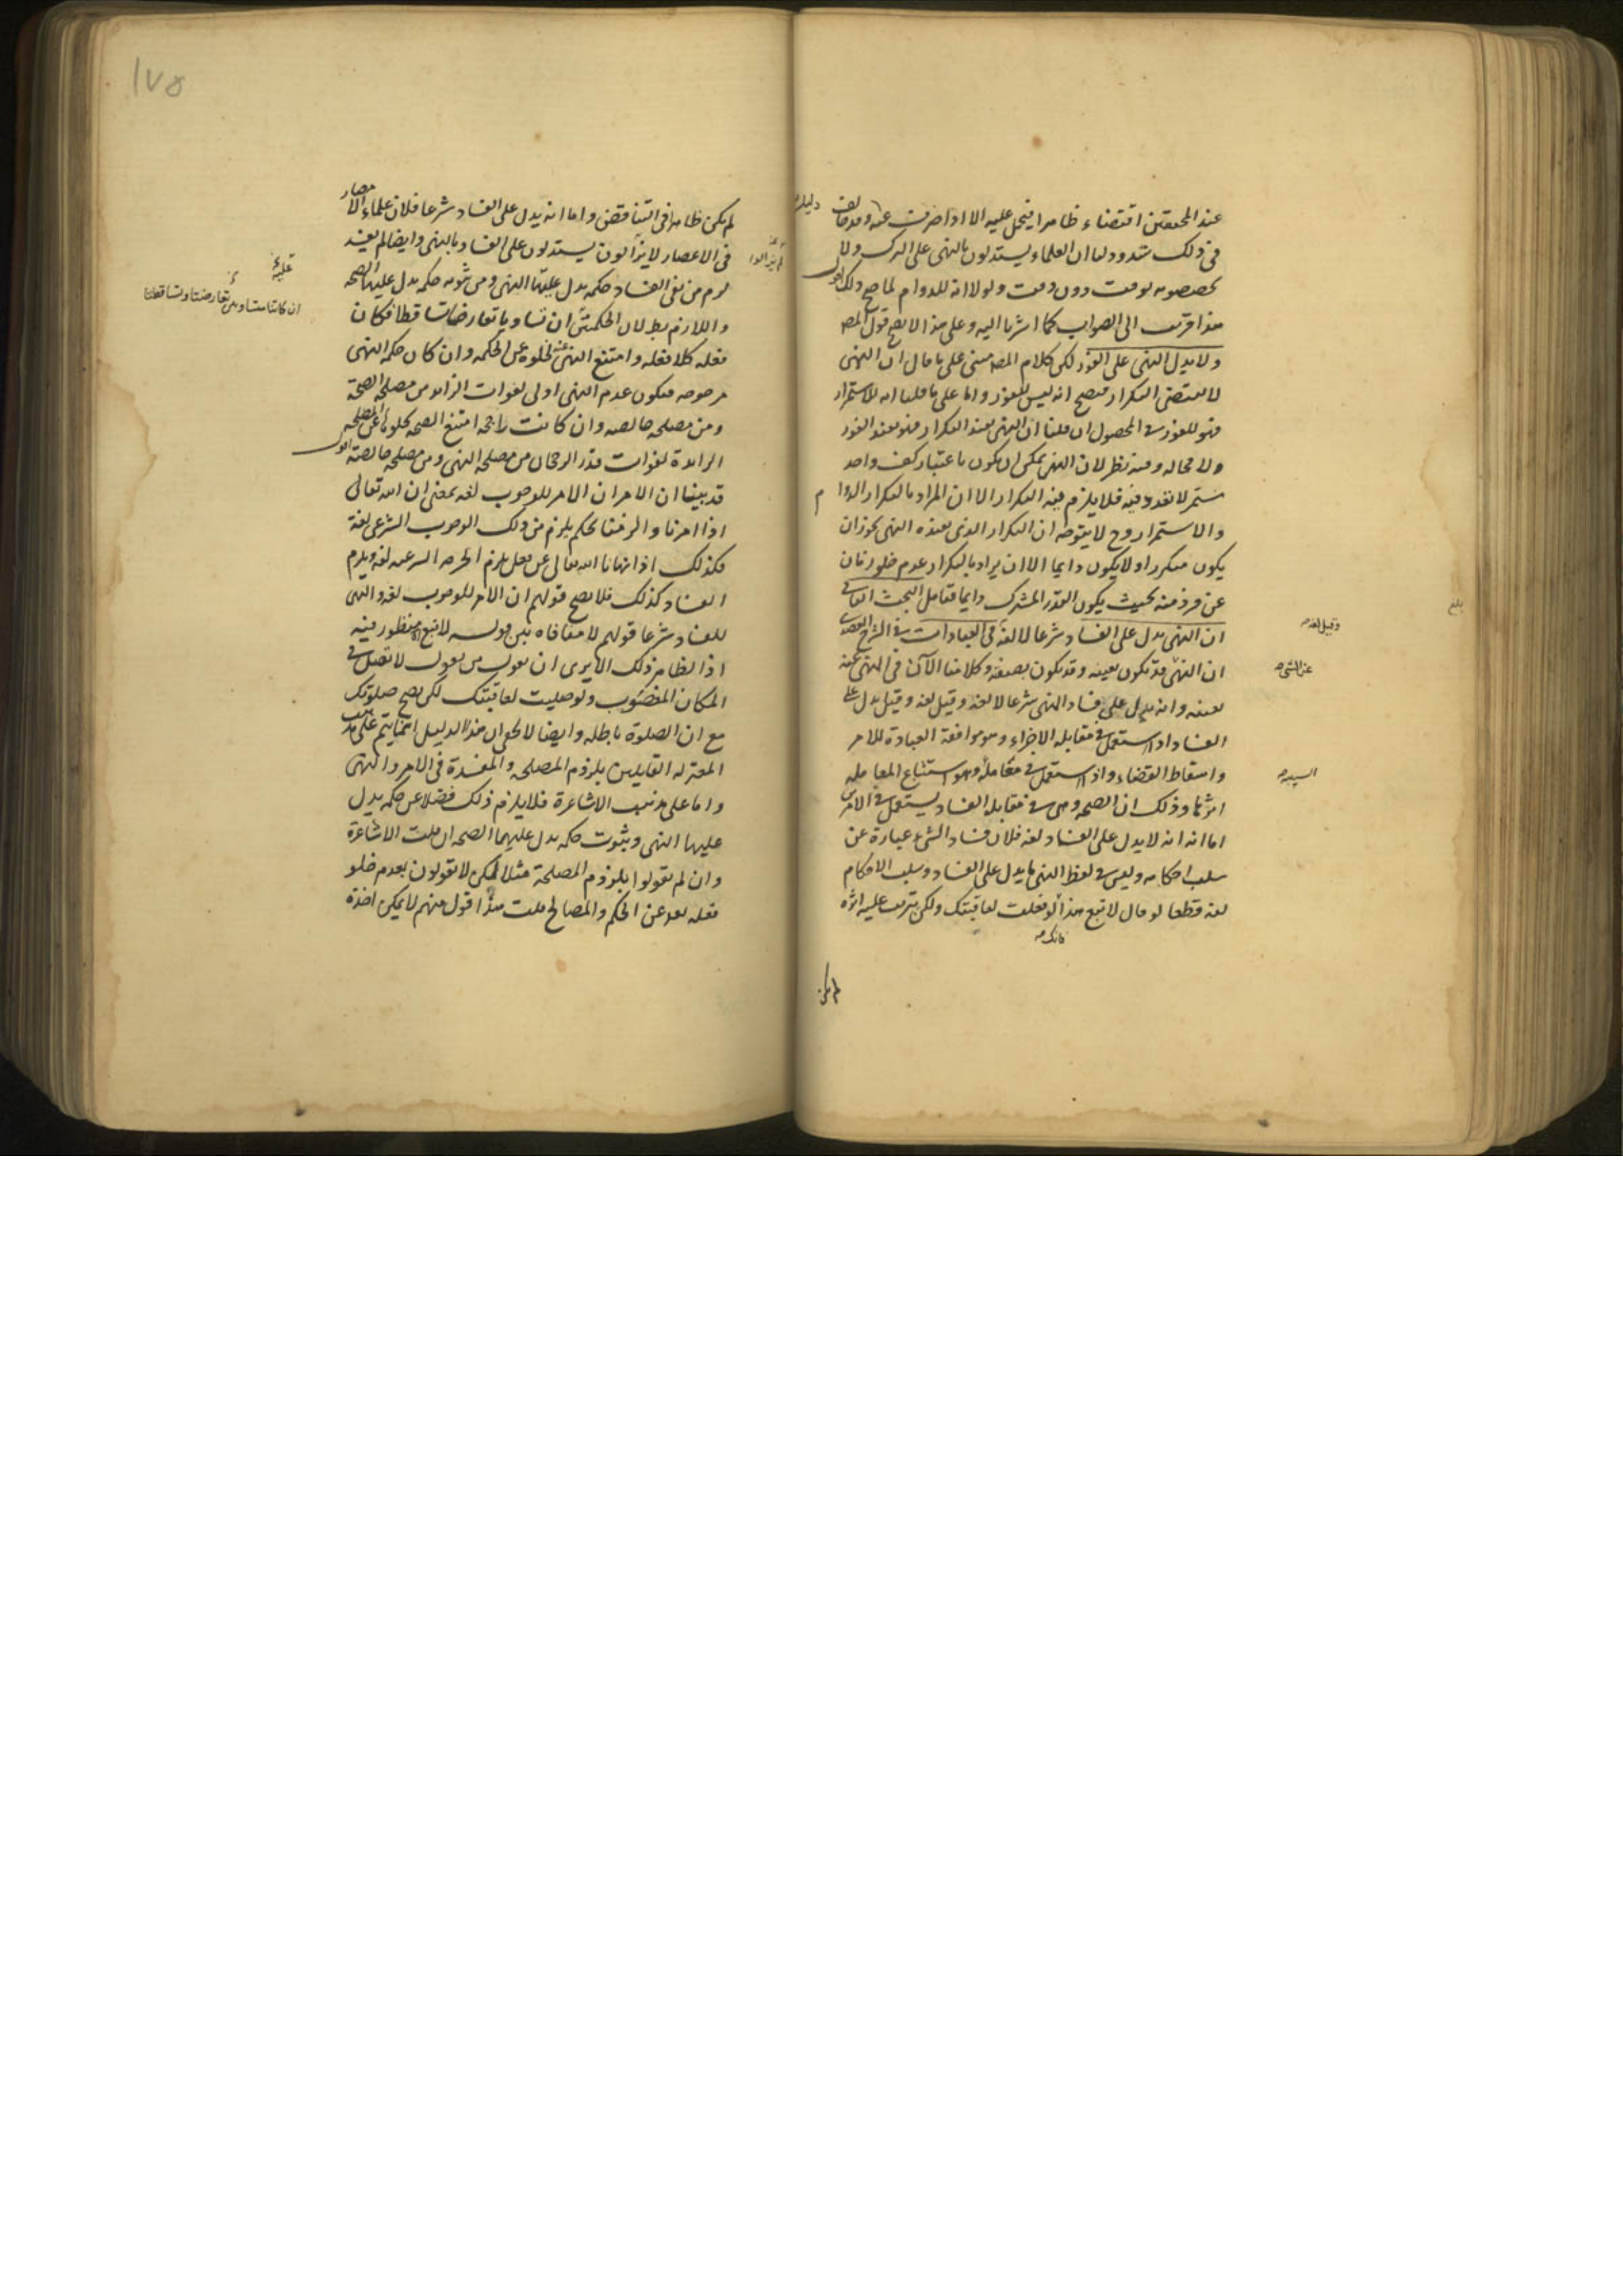 عند المحققين اقتضاء ظاهرا فيحمل عليه الا اذا صرف عنه وقد خالف
في ذلك شذوذ ولنا ان العلماء يستدلون بالنهى على الترك ولا
يخصصونه لوقت دون وقت ولولا انه للدوام لما صح ذلك اقول
هذا اقرب الى الصواب كما اشرنا اليه وعلى هذا لا يصح قول المص
ولا يدل النهى على الفور لكن كلام المص مبنى على ما قال ان النهى
لا يقتضى التكرار فيصح انه ليس للفور واما على ما قلنا انه للاستمرار
فهو للفور في المحصول ان قلنا ان النهى يفيد التكرار فهو يفيد الفور
ولا محاله وفيه نظر لان النهى يمكن ان يكون باعتبار كف واحد
مستمر لا تعدد فيه فلا يلزم فيه التكرار الا ان المراد بالتكرار الدوام
والاستمرار وح لا يتوجه ان التكرار الذى يفيده النهى يجوز ان
يكون متكررا ولا يكون دايما الا ان يراد بالتكرار عدم خلو زمان
عن فرد منه بحيث يكون القدر المشترك دايما فتامل البحث الثانى
ان النهى يدل على الفساد شرعا لا لغة في العبادات في الشرح العضدى
ان النهى قد يكون بعينه وقد يكون بصفته وكلامنا الآن في النهى عنه
بعينه وانه يدل على فساد النهى شرعا لا لغة وقيل لغة وقيل يدل على
الفساد اذا استعمل في مقابله الاجزاء وهو موافقة العبادة للامر
واسقاط القضاء واذا استعمل في معامله وهو استتباع المعامله
اثرها وذلك ان الصحه وهى في مقابله الفساد يستعمل في الامرين
اما انه لا يدل على الفساد لغة فلان فساد الشئ عبارة عن
سلب احكامه وليس في لفظ النهى ما يدل على الفساد وسلب الاحكام
لغة قطعا لو قال لا تبع هذا لو فعلت لعاقبتك ولكن يترتب عليه اثره
لم يكن
وقيل لغة
لم يكن ظاهرا في التناقض واما انه يدل على الفساد شرعا فلان علماء الامصار
في الاعصار لا يزالون يستدلون على الفساد بالنهى وايضا لم يفسد
لزم من نفى الفساد حكمه يدل عليها النهى ومن ثبوته حكمه يدل عليها الصحه
واللازم بطلان الحكمتين ان تساويا تعارضا تساقطا فكان
فعله كلا فعله وامتنع النهى عنه لخلوه عن الحكمه وان كان حكمه النهى
مرجوحه فيكون عدم النهى اولى لفوات الزايد من مصلحه الصحة
ومن مصلحه خالصه وان كانت راجحه امتنع الصحه لخلوها عن المصلحه
الزايدة لفوات قدر الرجحان من مصلحه النهى ومن مصلحه خالصه اقول
قد بينا ان الامر ان الامر للوجوب لغه بمعنى ان الله تعالى
اذا امرنا والزمنا بحكم يلزم من ذلك الوجوب الشرعى لغة
فكذلك اذا نهانا الله تعالى عن فعل يلزم الحرمه الشرعيه لغه ويلزم
الفساد كذلك فلا يصح قولهم ان الامر للوجوب لغه والنهى
للفساد شرعا قولهم لا منافاه بين قوله لا تبع منظور فيه
اذ الظاهر ذلك الا يرى ان يقول من يقول لا تصل في
المكان المغصوب ولو صليت لعاقبتك لكن يصح صلوتك
مع ان الصلوة باطله وايضا لا يخفى ان هذا الدليل انما يتم على مذهب
المعتزله القايلين بلزوم المصلحه والمفسدة في الامر والنهى
واما على مذهب الاشاعرة فلا يلزم ذلك فضلا عن حكمه يدل
عليها النهى وثبوت حكمه يدل عليهما الصحه ان قلت الاشاعرة
وان لم يقولوا بلزوم المصلحة مثلا لكن لا يقولون بعدم خلو
فعله بعد عن الحكم والمصالح قلت هذا قول منهم لا يمكن اخذه
ان كانتا متساويتين تعارضتا وتساقطتا
١٧٥